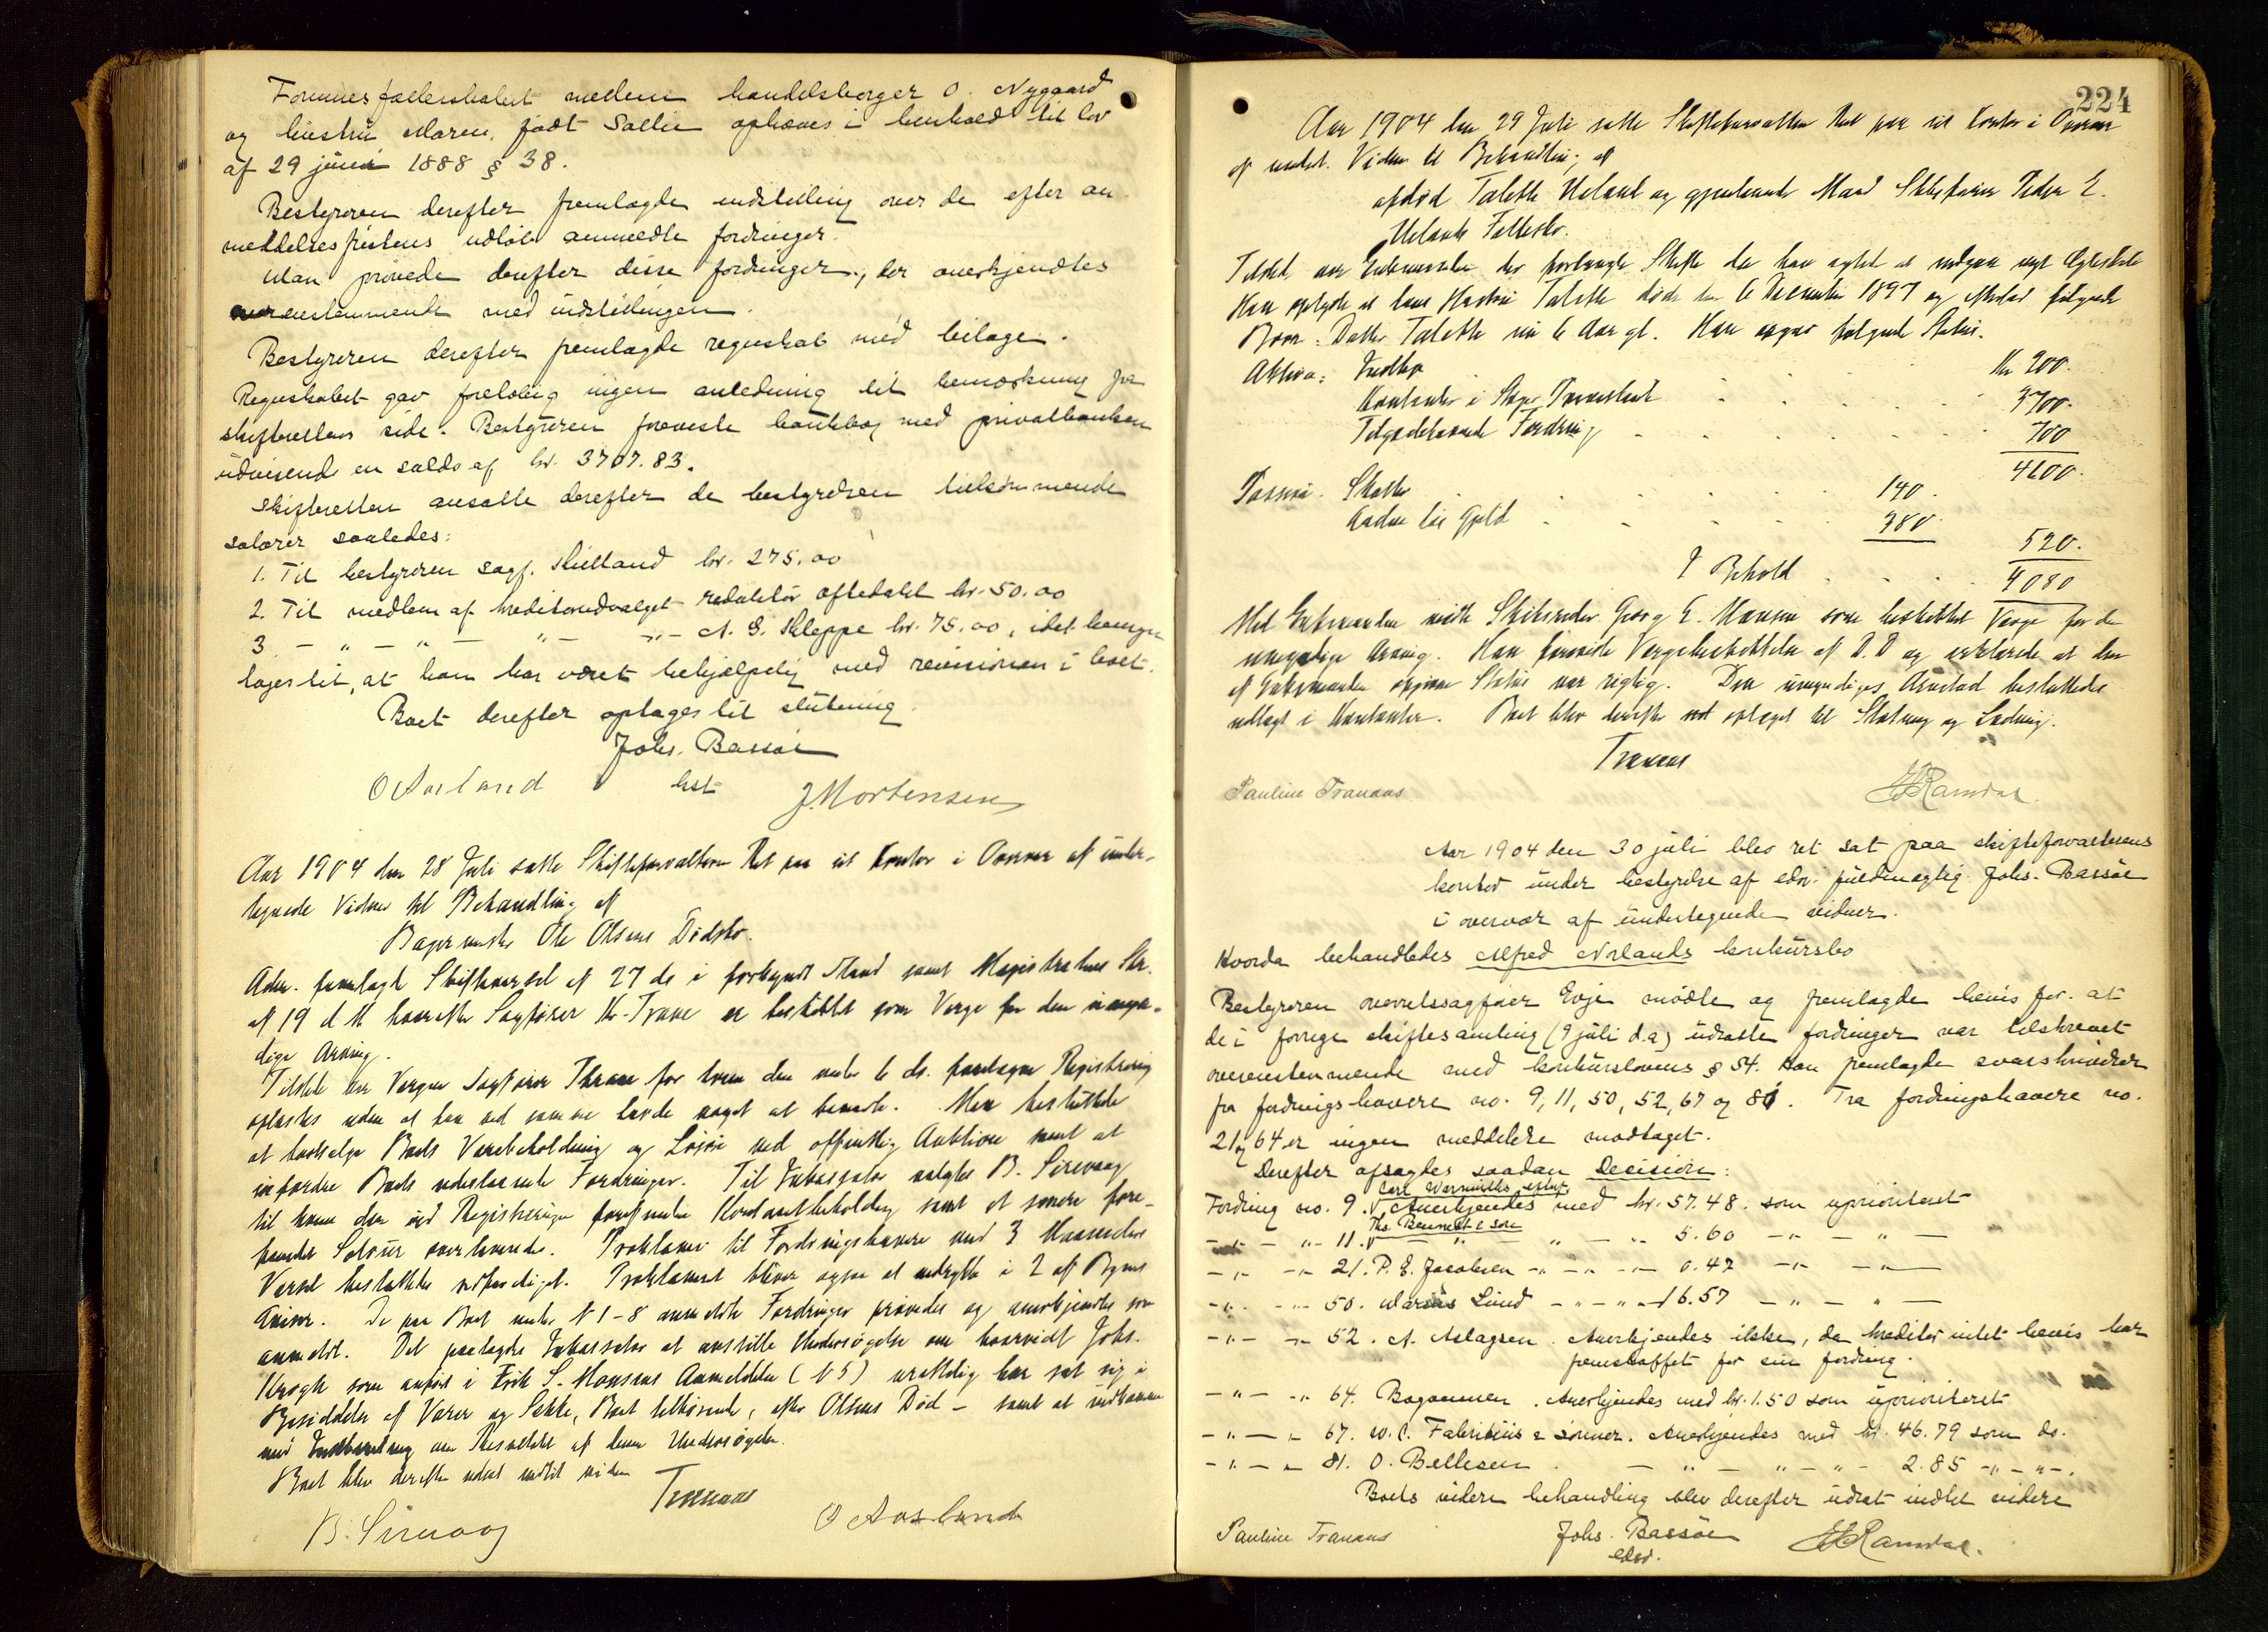 Formuesfællesskabet mellem handelsborger O. Nygaard
og hustru Maren, født Sællie ophæves i henhold til lov
af 29 juni 1888 § 38.
Bestyreren derefter fremlagde indstilling over de efter an-
meddelsesfristens udløb anmeldte fordringer.
Man prøvede derefter disse fordringer, der anerkjendtes
overenstemmende med indstillingen.
Bestyreren derefter fremlagde regnskab med bilage.
Regnskabet gav foreløbig ingen anledning til bemærkning fra
skifterettens side. Bestyreren foreviste bankbog med privatbanken
udvisende en saldo af kr. 3707.83.
Skifteretten ansatte derefter de bestyrelsen tilkommende
salærer saaledes:
1. Til bestyreren sagf. Kielland kr. 275.00
2. Til medlem af kreditorudvalget redaktør Oftedahl kr. 50.00
3 - " - " - " - " - A. G. Kleppe kr. 75.00, idet hensyn
toges til, at han har været behjælpelig med revisionen i boet.
Boet derefter optages til slutning.
Johs. Bassøe
O Aasland
J. Mortensen
Aar 1904 den 28 Juli satte Skifteforvalteren Ret paa sit Kontor i Overvær af under-
tegnede Vidner til Behandling af
Bagermester Ole Olsens Dødsbo.
Adm. fremlagde Skiftevarsel af 27 ds i forkyndt Stand samt Magistratens Skr.
af 19 d M hvorefter Sagfører Kr. Trane er beskikket som Verge for den umyn-
dige Arving.
Tilstede var Vergen Sagfører Thrane for hvem den under 6 ds. foretagne Registrering
oplæstes uden at han ved samme havde noget at bemærke. Man besluttede
at bortsælge Boets Varebeholdning og Løsøre ved offentlig Auktion samt at
infordre Boets udestaaende Fordringer. Til Inkassator valgtes B. Sirevaag
til hvem den ved Registreringen forefundne Kontantbeholdning samt et senere fore-
fundet Solvur overleveredes. Proklama til Fordringshavere med 3 Maaneders
Varsel besluttedes udfærdiget. Proklamaet bliver ogsaa at indrykke i 2 af Byens
Aviser. De paa Boet under N 1-8 anmeldte Fordringer prøvedes og anerkjendtes som
anmeldt. Det paalagdes Inkassator at anstille Undersøgelse om hvorvidt Johs.
Krogh som anført i Erik S. Monsens Anmeldelse (N 5) uretteldig har sat sig i
Besiddelse af Varer og Sække, Boet tilhørende, efter Olsens Død - samt at indkomme
med Indberetning om Resultatet af denne Undersøgelse.
Boet blev derefter udsat indtil videre
Tranaas
B. Sirevaag
O Aasland
224
Aar 1904 den 29 Juli satte Skifteforvalteren Ret paa sit Kontor i Overvær
af undert. Vidner til Behandling af
afdød Talette Ueland og gjenlevende Mand Skibsfører Peder E.
Uelands Fællesbo.
Tilstede var Enkemanden der forlangte Skifte da han agtet at indgaa nyt Ægteskab
Han oplyste at hans Hustru Talette døde den 6 December 1897 og efterlod følgende
Barn: Datter Talette nu 6 Aar gl. Han opgav følgende Status.
Aktiva: Indbo . . . Kr. 200.
Kontanter i Skpr. Præmiebank . . . 3700.
Tilgodehavende Fordring . . . 700
4600.
Passiva. Skatter . . . 140.
Anden løs Gjeld . . . 380.
520.
I Behold . . . 4080
Med Enkemanden mødte Skibsreder Georg E. Monsen som beskikket Verge for den
umyndige Arving. Han foreviste Vergebeskikkelse af D. D og erklærede at den
af Enkemanden opgivne Status var rigtig. Den umyndiges Arvelod besluttedes
udlagt i Kontanter. Boet blev derefter optaget til Slutning og Lodning.
Tranaas
Pauline Tranaas
Ramdal.
Aar 1904 den 30 juli blev ret sat paa skifteforvalterens
kontor under bestyrelse af edsv. fuldmægtig Johs. Bassøe
i overvær af undertegnede vidner.
Hvorda behandledes Alfred Nolands konkursbo
Bestyreren overretssagfører Evje mødte og fremlagde bevis for at
de i forrige skiftesamling (9 juli d.a) udsatte fordringer var tilskrevet
overenstemmende med konkurslovens § 54. Han fremlagde svarskrivelser
fra fordringshavere no. 9, 11, 50, 52, 67 og 81. Fra fordringshavere no.
21 og 64 er ingen meddelelse modtaget.
Derefter afsagdes saadan Decision:
Carl Warmuths efterf.
Fordring no. 9. V Anerkjendes med kr. 57.48. som uprioriteret
Ths. Bennett & søn
- " - " - 11. V " - " - " 5.60 - " - " -
- " - " 21. P. E. Jacobsen - " - " - " 0.47 - " - " -
- " - " 50. Marius Lund - " - " - 16.57 - " - " -
- " - " 52. A. Aslagsen. Anerkjendes ikke, da kreditor intet bevis har
fremskaffet for sin fordring.
- " - " 64. Bogommen. Anerkjendes med kr. 1.50 som uprioriteret
- " - " 67. W. C. Fabritius & sønner. Anerkjendes med kr. 46.79 som do.
- " - " 81. O. Bellesen . - " - " - " - 2.85 - " - " -.
Boets videre behandling blev derefter udsat indtil videre
Pauline Tranaas
Johs. Bassøe
edsv.
Ramdal.